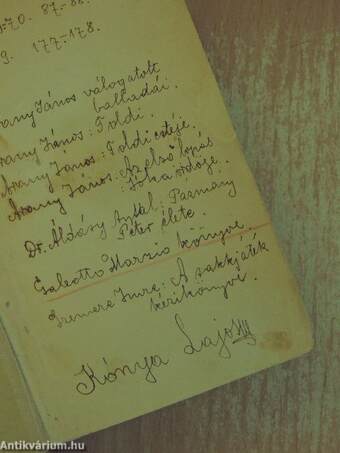 -70. 87-88.
9. 177-178.
Arany János válogatott
balladái.
Arany János: Toldi.
Arany János: Toldi estéje.
Arany János: Az első lopás
Jóka ördöge.
Dr. Áldásy Antal: Pázmány
Péter élete.
Galeotto Marzio könyve.
Szemere Imre: A sakkjáték
kézikönyve.
Kónya Lajos
Antikvárium.hu